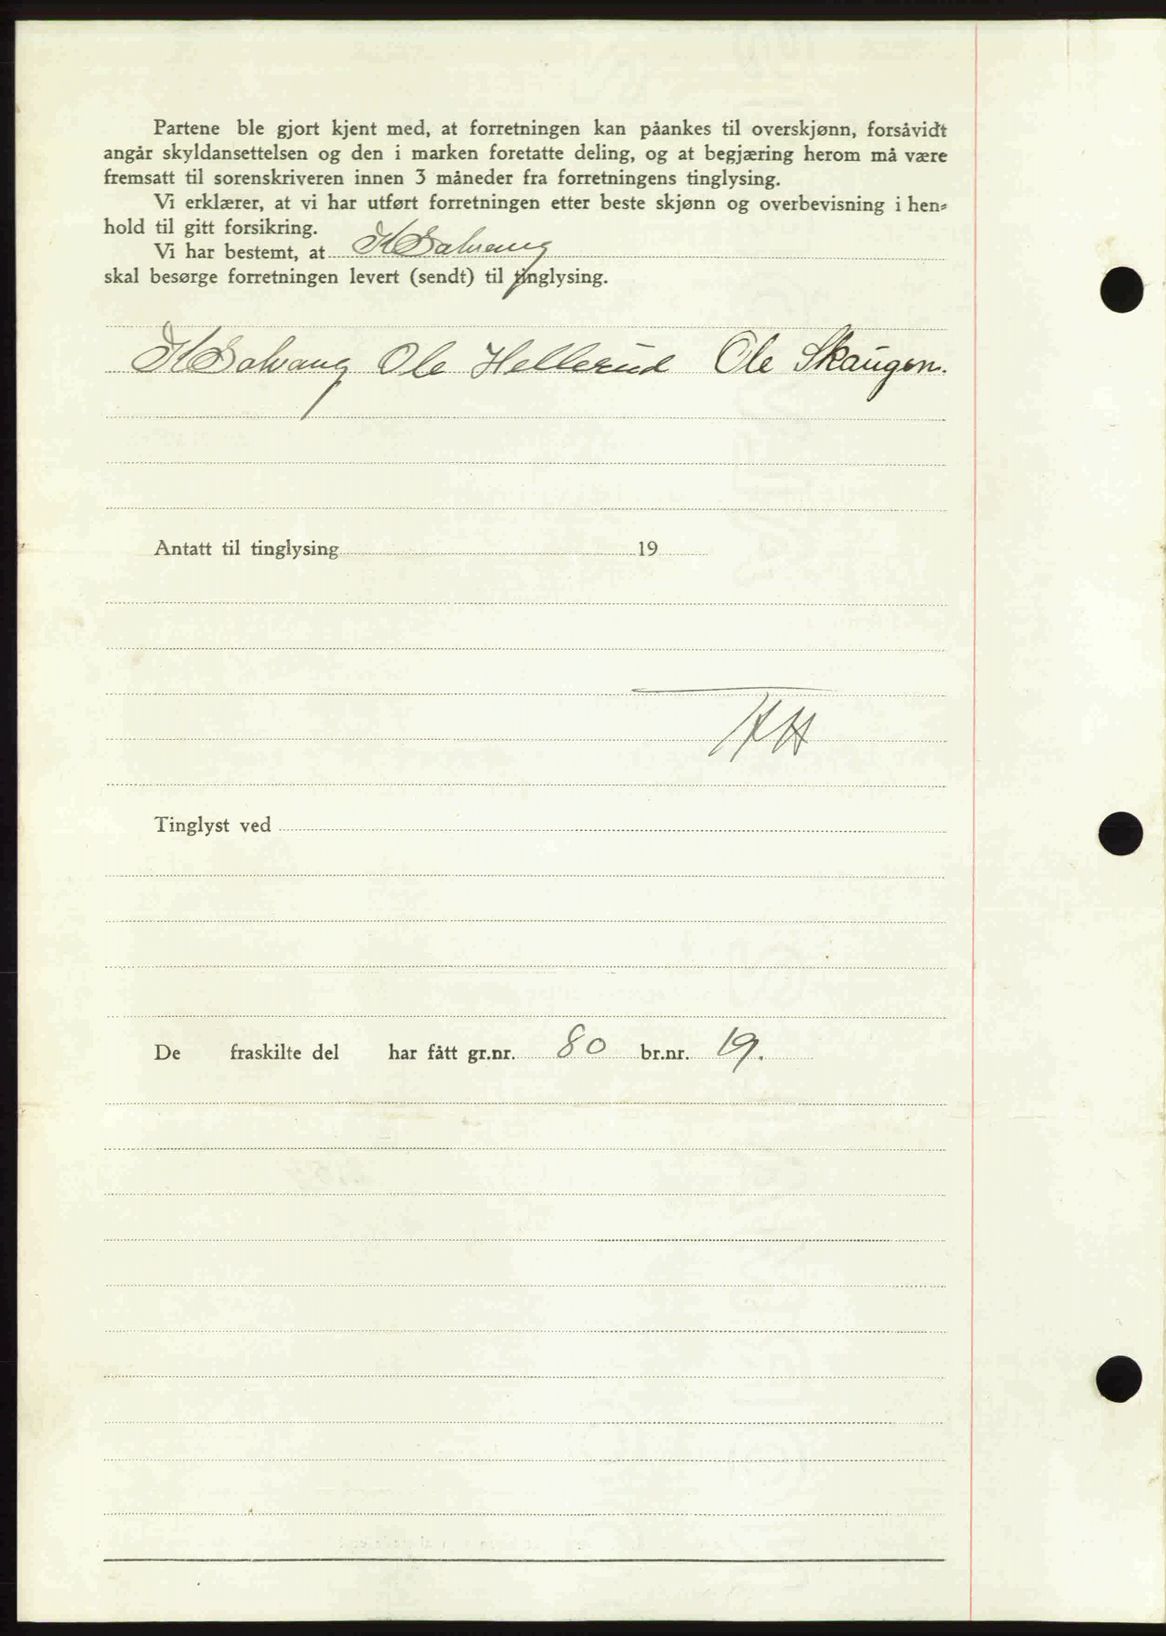 Partene ble gjort kjent med, at forretningen kan påankes til overskjønn, forsåvidt
angår skyldansettelsen og den i marken foretatte deling, og at begjæring herom må være
fremsatt til sorenskriveren innen 3 måneder fra forretningens tinglysing.
Vi erklærer, at vi har utført forretningen etter beste skjønn og overbevisning i hen-
hold til gitt forsikring.
Vi har bestemt, at H Solvang
skal besørge forretningen levert (sendt) til tinglysing.
H Solvang Ole Hellerud Ole Skaugen.
Antatt til tinglysing 19
Tinglyst ved
De fraskilte del har fått gr.nr. 80 br.nr. 19.